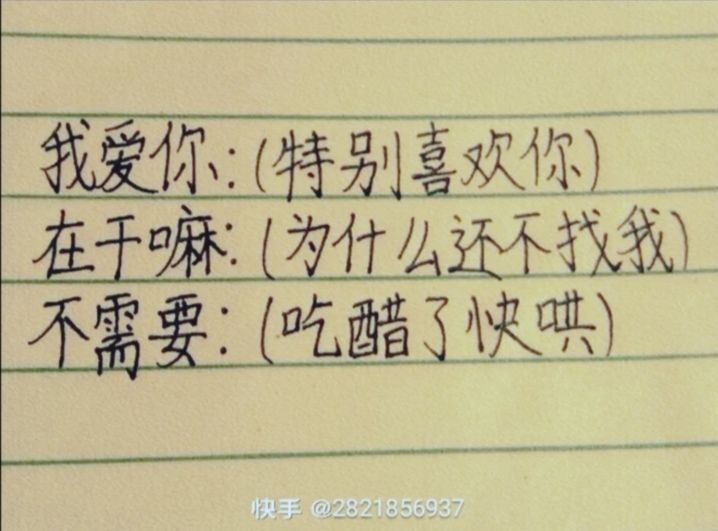 我爱你:(特别喜欢你)
在干嘛:(为什么还不找我)
不需要:(吃醋了快哄)
快手 @2821856937